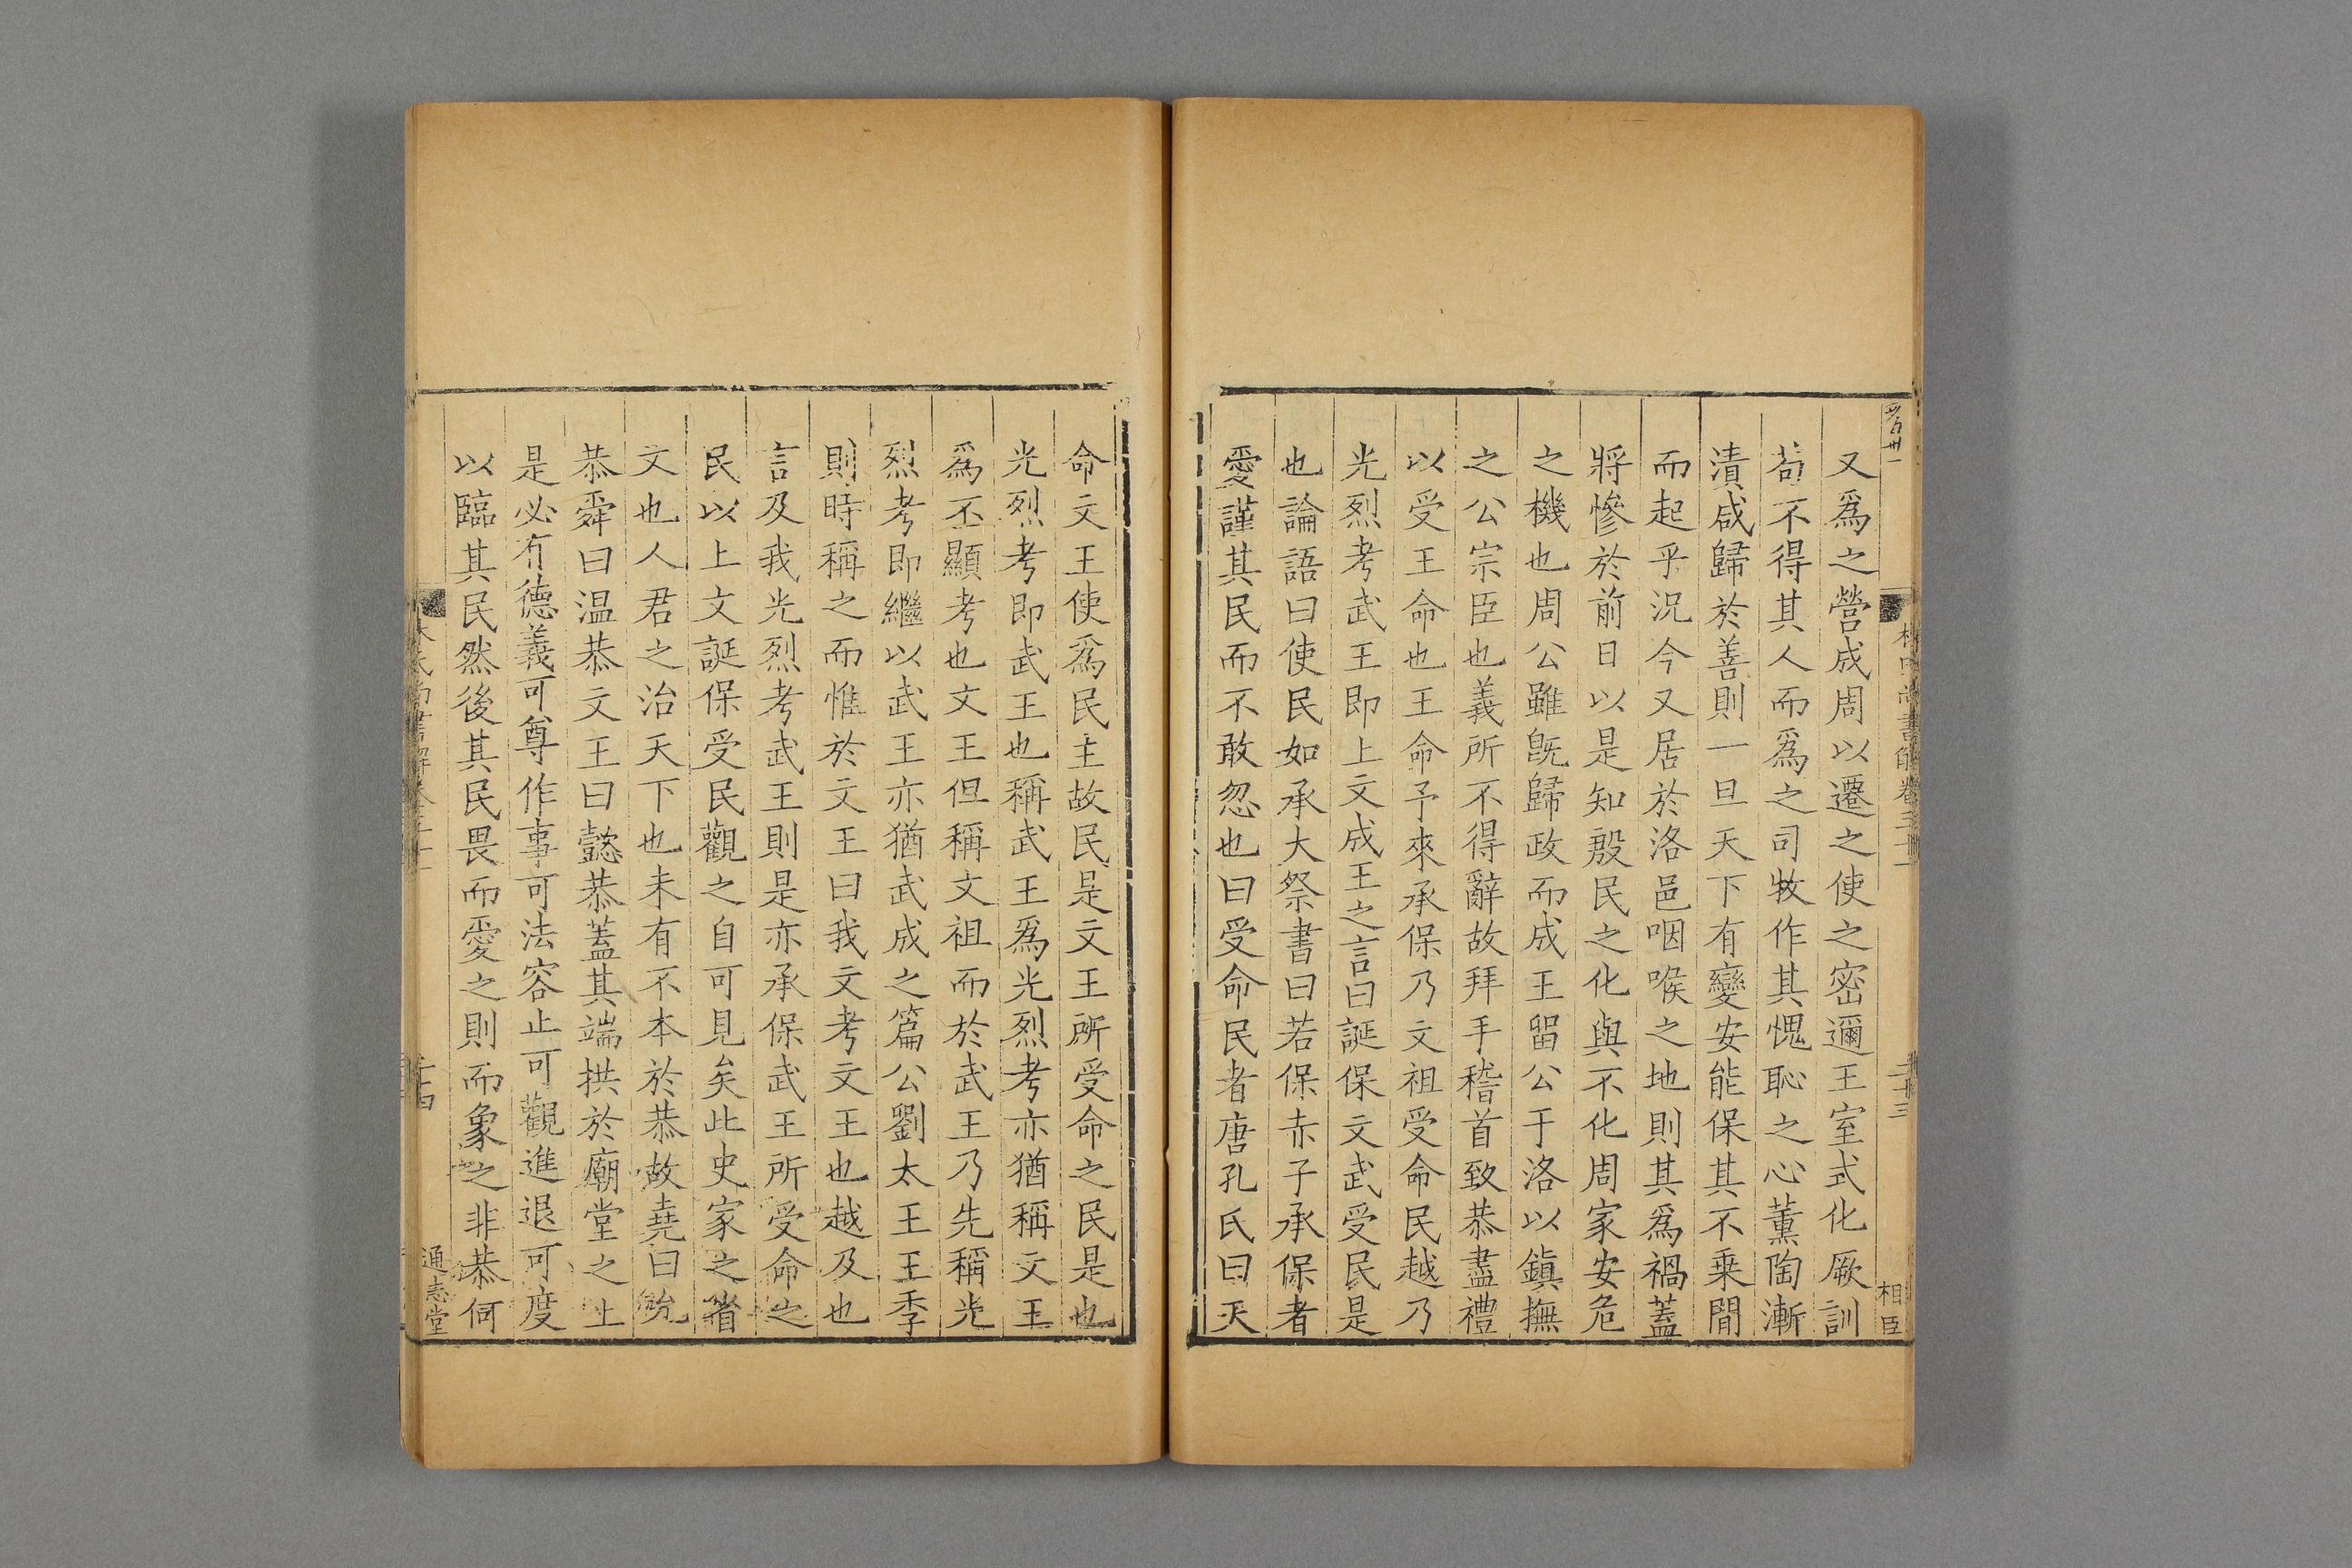 又爲之營成周以遷之使之密邇王室式化厥訓
苟不得其人而爲之司牧作其愧恥之心薰陶漸
漬咸歸於善則一旦天下有變安能保其不乗間
而起乎况今又居於洛邑咽喉之地則其爲禍蓋
將慘於前日以是知殷民之化與不化周家安危
之機也周公雖旣歸政而成王留公于洛以鎮撫
之公宗臣也義所不得辭故拜手稽首致恭盡禮
以受王命也王命予來承保乃文祖受命民越乃
光烈考武王即上文成王之言曰誕保文武受民是
也論語曰使民如承大祭書曰若保赤子承保者
愛謹其民而不敢忽也曰受命民者唐孔氏曰天
相臣
命文王使爲民主故民是文王所受命之民是也
光烈考即武王也稱武王爲光烈考亦猶稱文王
爲丕顯考也文王但稱文祖而於武王乃先稱光
烈考即繼以武王亦猶武成之篇公劉太王王季
則時稱之而惟於文王曰我文考文王也越及也
言及我光烈考武王則是亦承保武王所受命之
民以上文誕保受民觀之自可見矣此史家之省
文也人君之治天下也未有不本於恭故堯曰允
恭舜曰温恭文王曰懿恭蓋其端拱於廟堂之上
是必有德義可尊作事可法容止可觀進退可度
以臨其民然後其民畏而愛之則而象之非恭何
通志堂